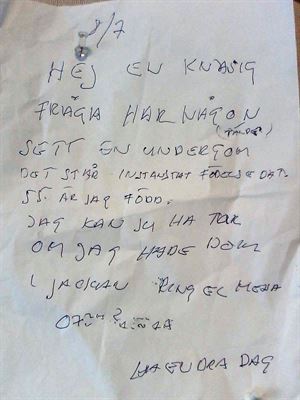 8/7
HEJ EN KNASIG
FRÅGA HAR NÅGON
(TÄNDER)
SETT EN UNDERGOM
DET STÅR INSTANSTAT FÖDELSEDAT.
55. ÄR JAG FÖDD.
JAG KAN JU HA TAR
OM JAG HADE DOM
I JACKAN RING EL MESSA
HA EN BRA DAG